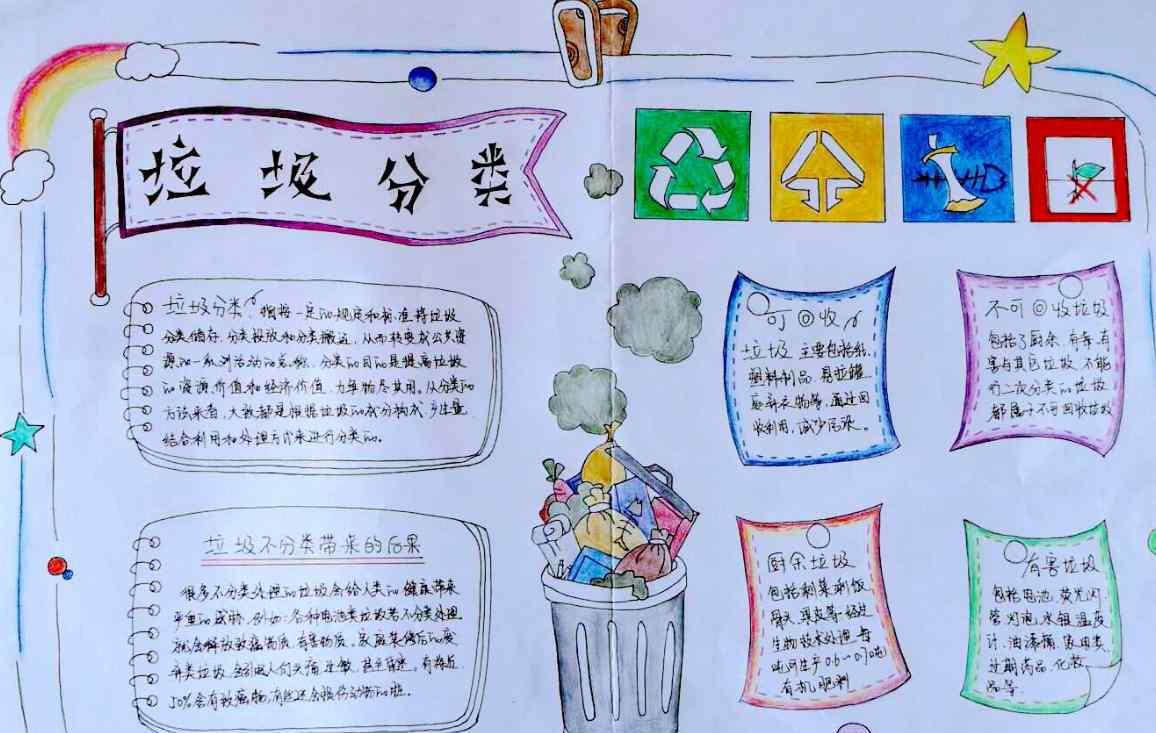 垃圾分类
垃圾分类,指按一定的规定和标准将垃圾
分类储存、分类投放和分类搬运,从而转变成公共资
源的一系列活动的总称。分类的目的是提高垃圾
的资源价值和经济价值,力争物尽其用。从分类的
方法来看,大致都是根据垃圾的成分构成、产生量
结合利用和处理方式来进行分类的。
垃圾不分类带来的后果
很多不分类处理的垃圾会给人类的健康带来
严重的威胁,例如:各种电池类垃圾若不分类处理
就会释放致癌物质、有害物质。家庭装修后的废
弃类垃圾,会引起人们头痛、过敏,甚至。有将近
50%含有致癌物,有些还会损伤动物的。
可回收
垃圾 主要包括纸、
塑料制品、易拉罐、
衣物等,通过回
收利用,减少污染。
不可回收垃圾
包括了厨余、有毒、有
害与其它垃圾,不能
二次分类的垃圾
都属于不可回收垃圾
厨余垃圾
包括剩菜剩饭、
骨头、果皮等,经过
生物技术处理,每
吨可生产0.6~0.7吨
有机肥料
有害垃圾
包括电池、荧光灯
管、灯泡、水银温度
计、油漆桶、家用类、
过期药品、化妆
品等。